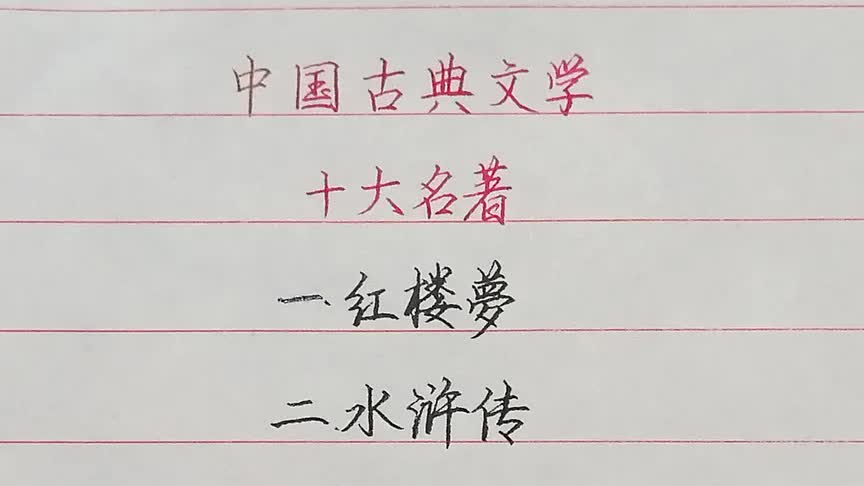 中国古典文学
十大名著
一、红楼夢
二、水浒传